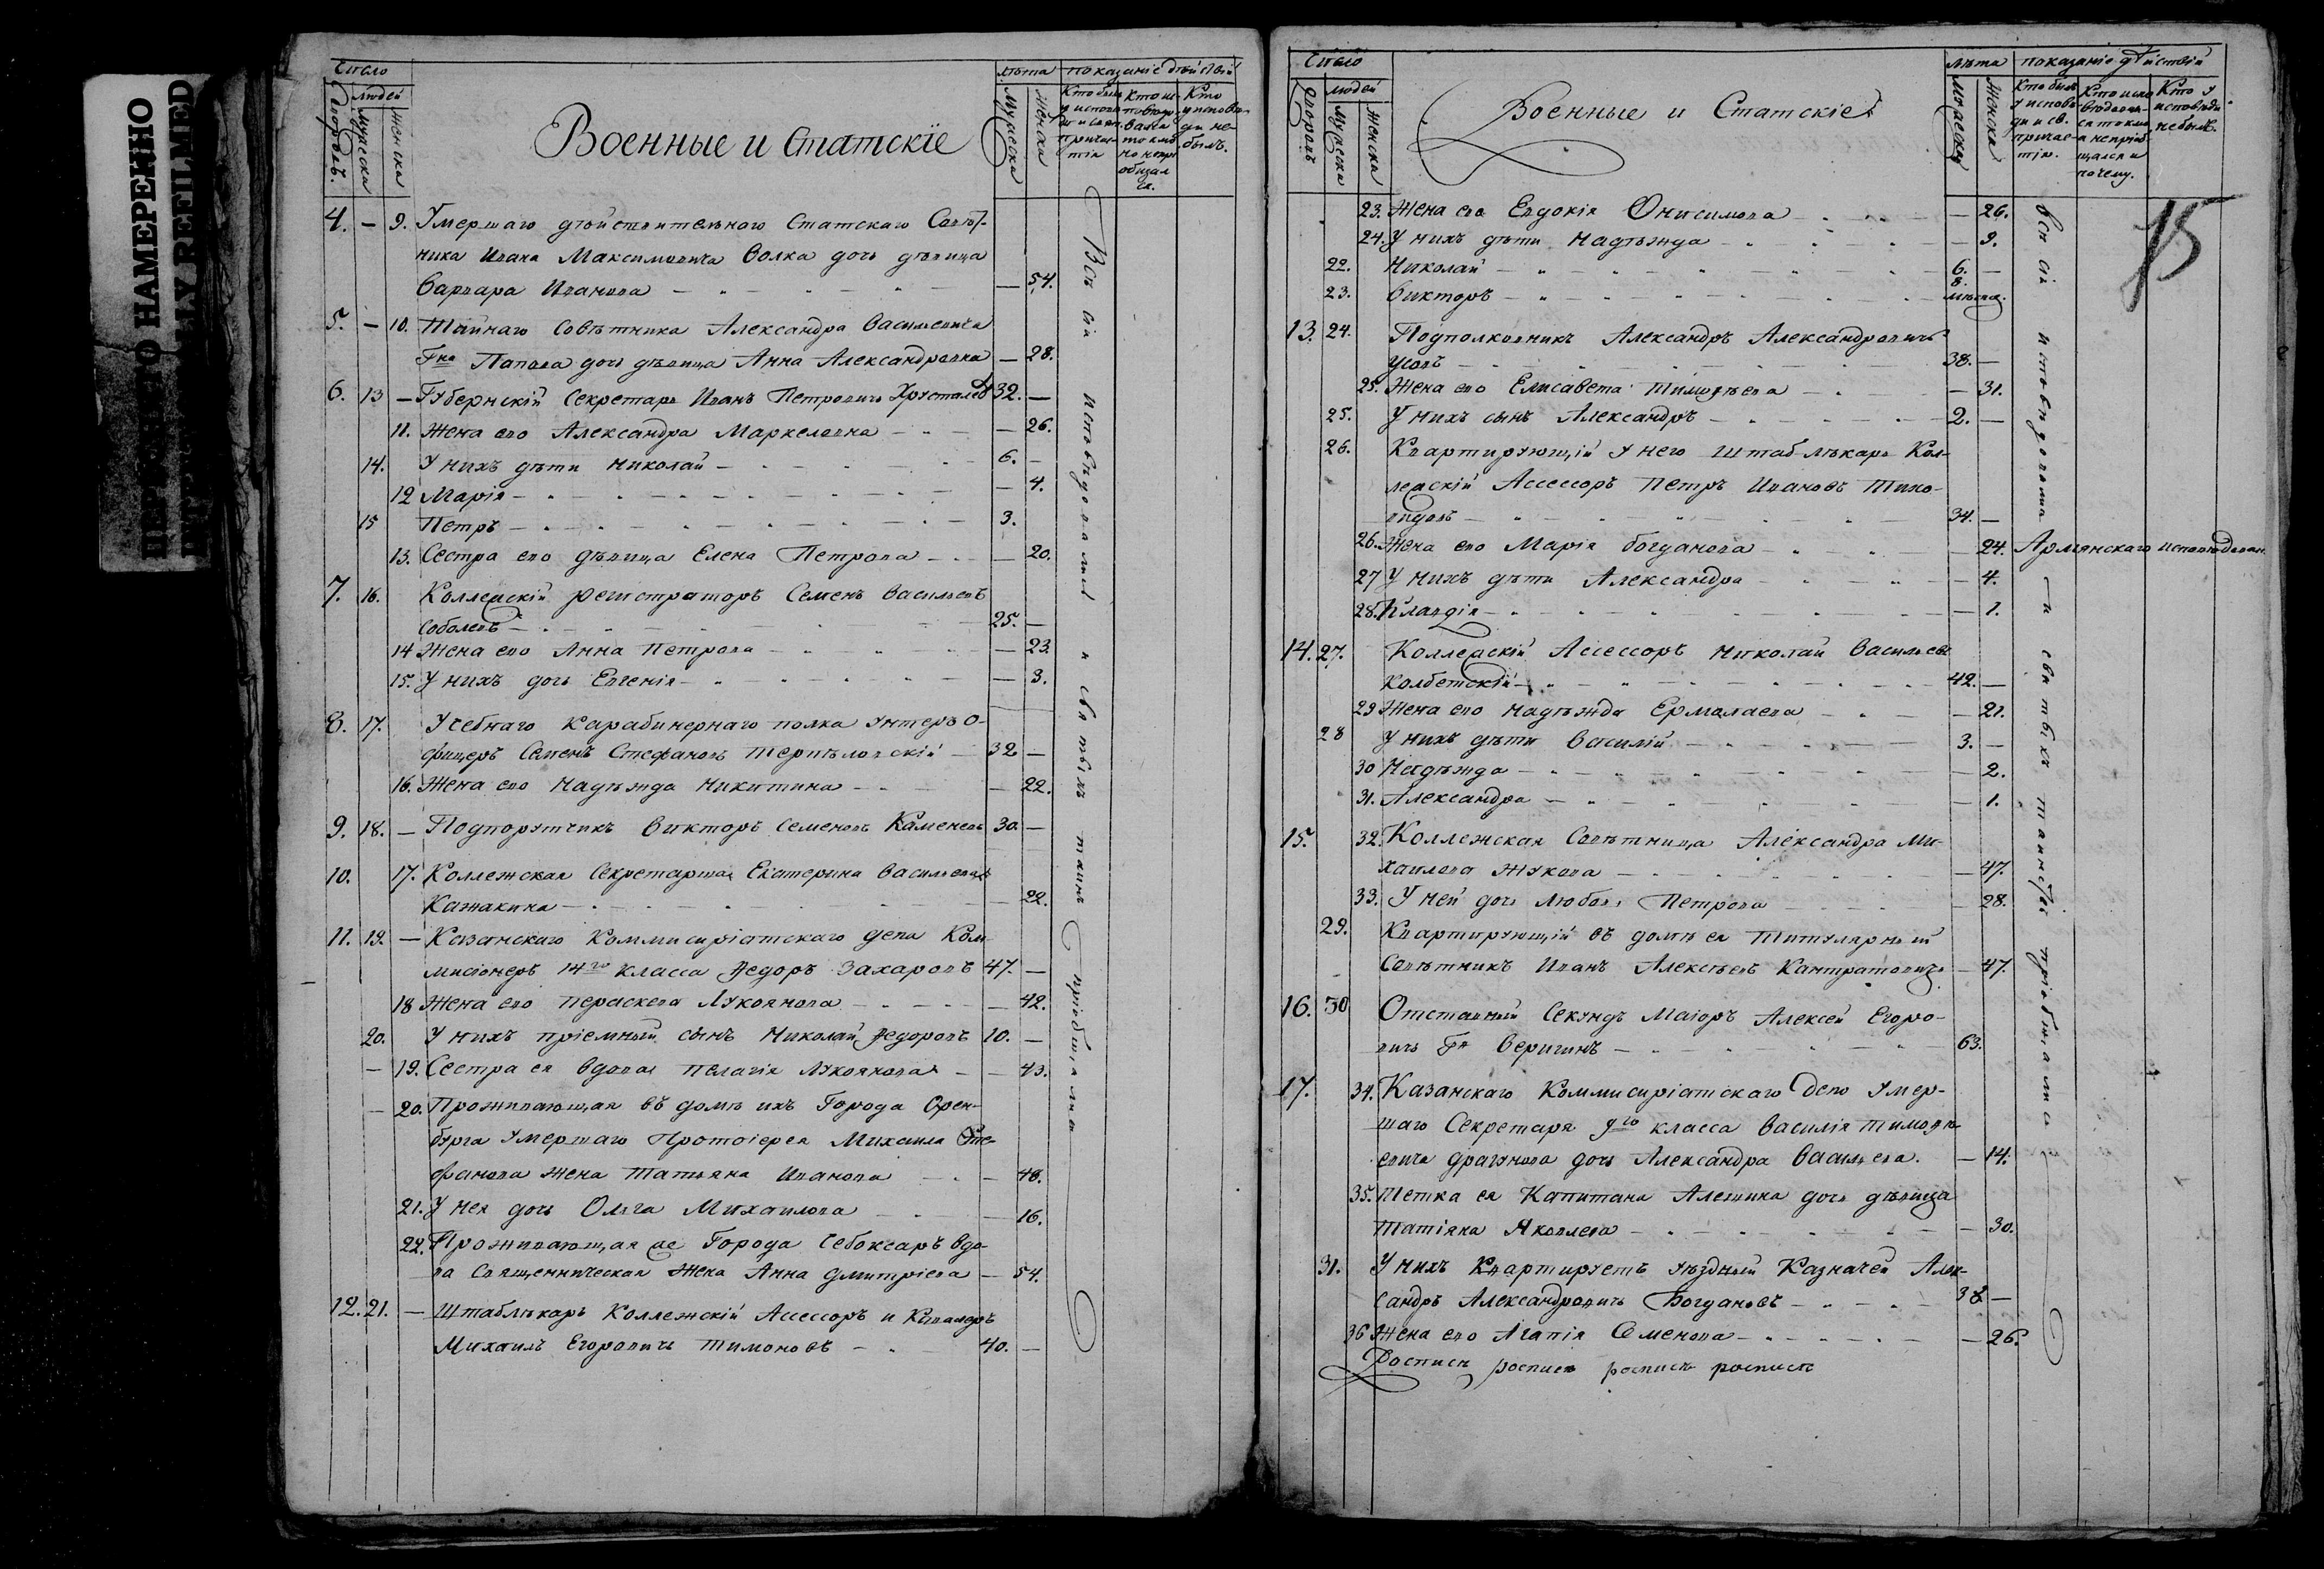 НЕРЕЗКО НАМЕРЕННО
Число
Дворовъ.
людей
Мужеска
Женска
Военные и Статскіе
лѣта
Мужеска
Женска
показаніе дѣйствій
Кто былъ у исповѣди и свят. причастія
Кто исповѣдовался токмо но не пріобщался.
Кто у исповѣди не былъ.
4. — 9. Умершаго дѣйствительнаго Статскаго Совѣт-
ника Ивана Максимовича Волка дочь дѣвица
Варвара Иванова — 54.
5. — 10. Тайнаго Совѣтника Александра Васильевича
Гна Попова дочь дѣвица Анна Александровна — 28.
6. 13 — Губернскій Секретарь Иванъ Петровичь Хрусталевъ 32. —
11. Жена его Александра Маркеловна — 26.
14. У нихъ дѣти Николай — 6. —
12 Марія — 4.
15 Петръ — 3.
13. Сестра его дѣвица Елена Петрова — 20.
7. 16. Коллежскій регистраторъ Семенъ Васильевъ
Соболевъ — 25. —
14 Жена его Анна Петрова — 23.
15. У нихъ дочь Евгенія — 3.
8. 17. Учебнаго Карабинернаго полка Унтеръ о-
фицеръ Семенъ Стефановъ Терпѣловскій — 32 —
16. Жена его Надѣжда Никитина — 22.
9. 18. — Подпорутчикъ Викторъ Семеновъ Каменевъ 30. —
10. 17. Коллежская Секретарша Екатерина Васильева
Кажакина — 22.
11. 19. — Казанскаго Коммисиріатскаго депа Ком-
мисіонеръ 14го класса Ѳедоръ Захаровъ 47. —
18 Жена его Пераскева Лукоянова — 42.
20. У нихъ пріемный сынъ Николай Ѳедоровъ 10. —
— 19. Сестра ея вдова Пелагія Лукоянова — 43.
— 20. Проживающая въ домѣ ихъ Города Орен-
бурга умершаго Протоіерея Михаила Сте-
фанова жена Татьяна Иванова — 48.
21. У нея дочь Ольга Михаилова — 16.
22. Проживающая же Города Чебоксаръ вдо-
ва Священническая Жена Анна Дмитріева — 54.
12. 21. — Штаблѣкарь Коллежскій Ассессоръ и Кавалеръ
Михаилъ Егоровичь Тимоновъ — 40. —
Всѣ сіи исповѣдовались и святыхъ таинъ пріобщились
Число
Дворовъ
людей
Мужеска
Женска
Военные и Статскіе
лѣта
Мужеска
Женска
показаніе дѣйствій
Кто былъ у исповѣди и св. причастія.
Кто исповѣдовался токмо а не пріобщался и почему.
Кто у исповѣди не былъ.
15
23. Жена его Евдокія Онисимова — 26.
24. У нихъ дѣти Надѣжда — 9.
22. Николай — 6. —
23. Викторъ — 8. мѣсяц.
13. 24. Подполковникъ Александръ Александровичь
Усовъ — 38. —
25. Жена его Елисавета Тимоѳѣева — 31.
25. У нихъ сынъ Александръ — 2. —
26. Квартирующій у него Штаб лѣкарь Кол-
лежскій Ассессоръ Петръ Ивановъ Тихо-
видовъ — 34. —
26. Жена его Марія Богданова — 24. Армянскаго исповѣдован.
27 У нихъ дѣти Александра — 4.
28. Клавдія — 1.
14. 27. Коллежскій Ассессоръ Николай Васильевъ
Колбетскій — 42. —
29 Жена его Надѣжда Ермолаева — 21.
28 У нихъ дѣти Василій — 3. —
30 Надѣжда — 2.
31. Александра — 1.
15. 32. Коллежская Совѣтница Александра Ми-
хаилова Жукова — 47.
33. У ней дочь Любовь Петрова 28.
29. Квартирующій въ домѣ ея Титулярный
Совѣтникъ Иванъ Алексѣевъ Кантратовичь — 47.
16. 30 Отставный Секундъ Маіоръ Алексей Егоро-
вичь Гн Веригинъ — 63.
17. 34. Казанскаго Коммисиріатскаго Депо умер-
шаго Секретаря 9го класса Василія Тимоѳѣ-
евича Драгунова дочь Александра Васильева. — 14.
35. Тетка ея Капитана Алешина дочь дѣвица
Татіяна Яковлева — 30.
31. У нихъ Квартируетъ уѣздный Казначей Алек-
сандръ Александровичь Богдановъ — 38 —
36 Жена его Агапія Семенова — 26.
Роспись роспись роспись роспись
всѣ сіи исповѣдовались и святыхъ таинствъ пріобщались